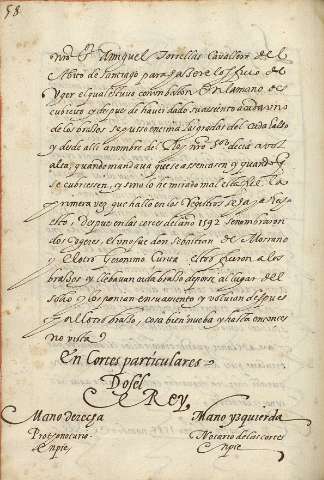 58
nro Sr A miguel Torrellas Cavallero del
Abito de Santiago para q assere los filio de
Vger el qual estuvo con un baston en la mano des
cubierto y despues de haver dado su assiento a cada uno
de los brassos se pusso encima las gradas del cada
y desde alli a nombre del Rey nro Sr decia a voz
alta, quando mandava que se assentassen y quando q
se cubriessen, y sino lo he mirado mal es la
primera vez que hallo en los Registros se haya
esto despues en las cortes del año 1592 se nombraron
dos Vgeres el uno fue don Sebastian de Moncano
y el otro Geronimo estos fueron a los
brassos y llebavan cada brasso de por si al lugar del
y los ponian en su asiento y volvian despues
por el otro brasso, cosa bien nueba y hasta entonces
no vista
En Cortes particulares
Dosel
Rey
Mano derecha
Protonotario
En pie
Mano yzquierda
Notario de las cortes
En pie